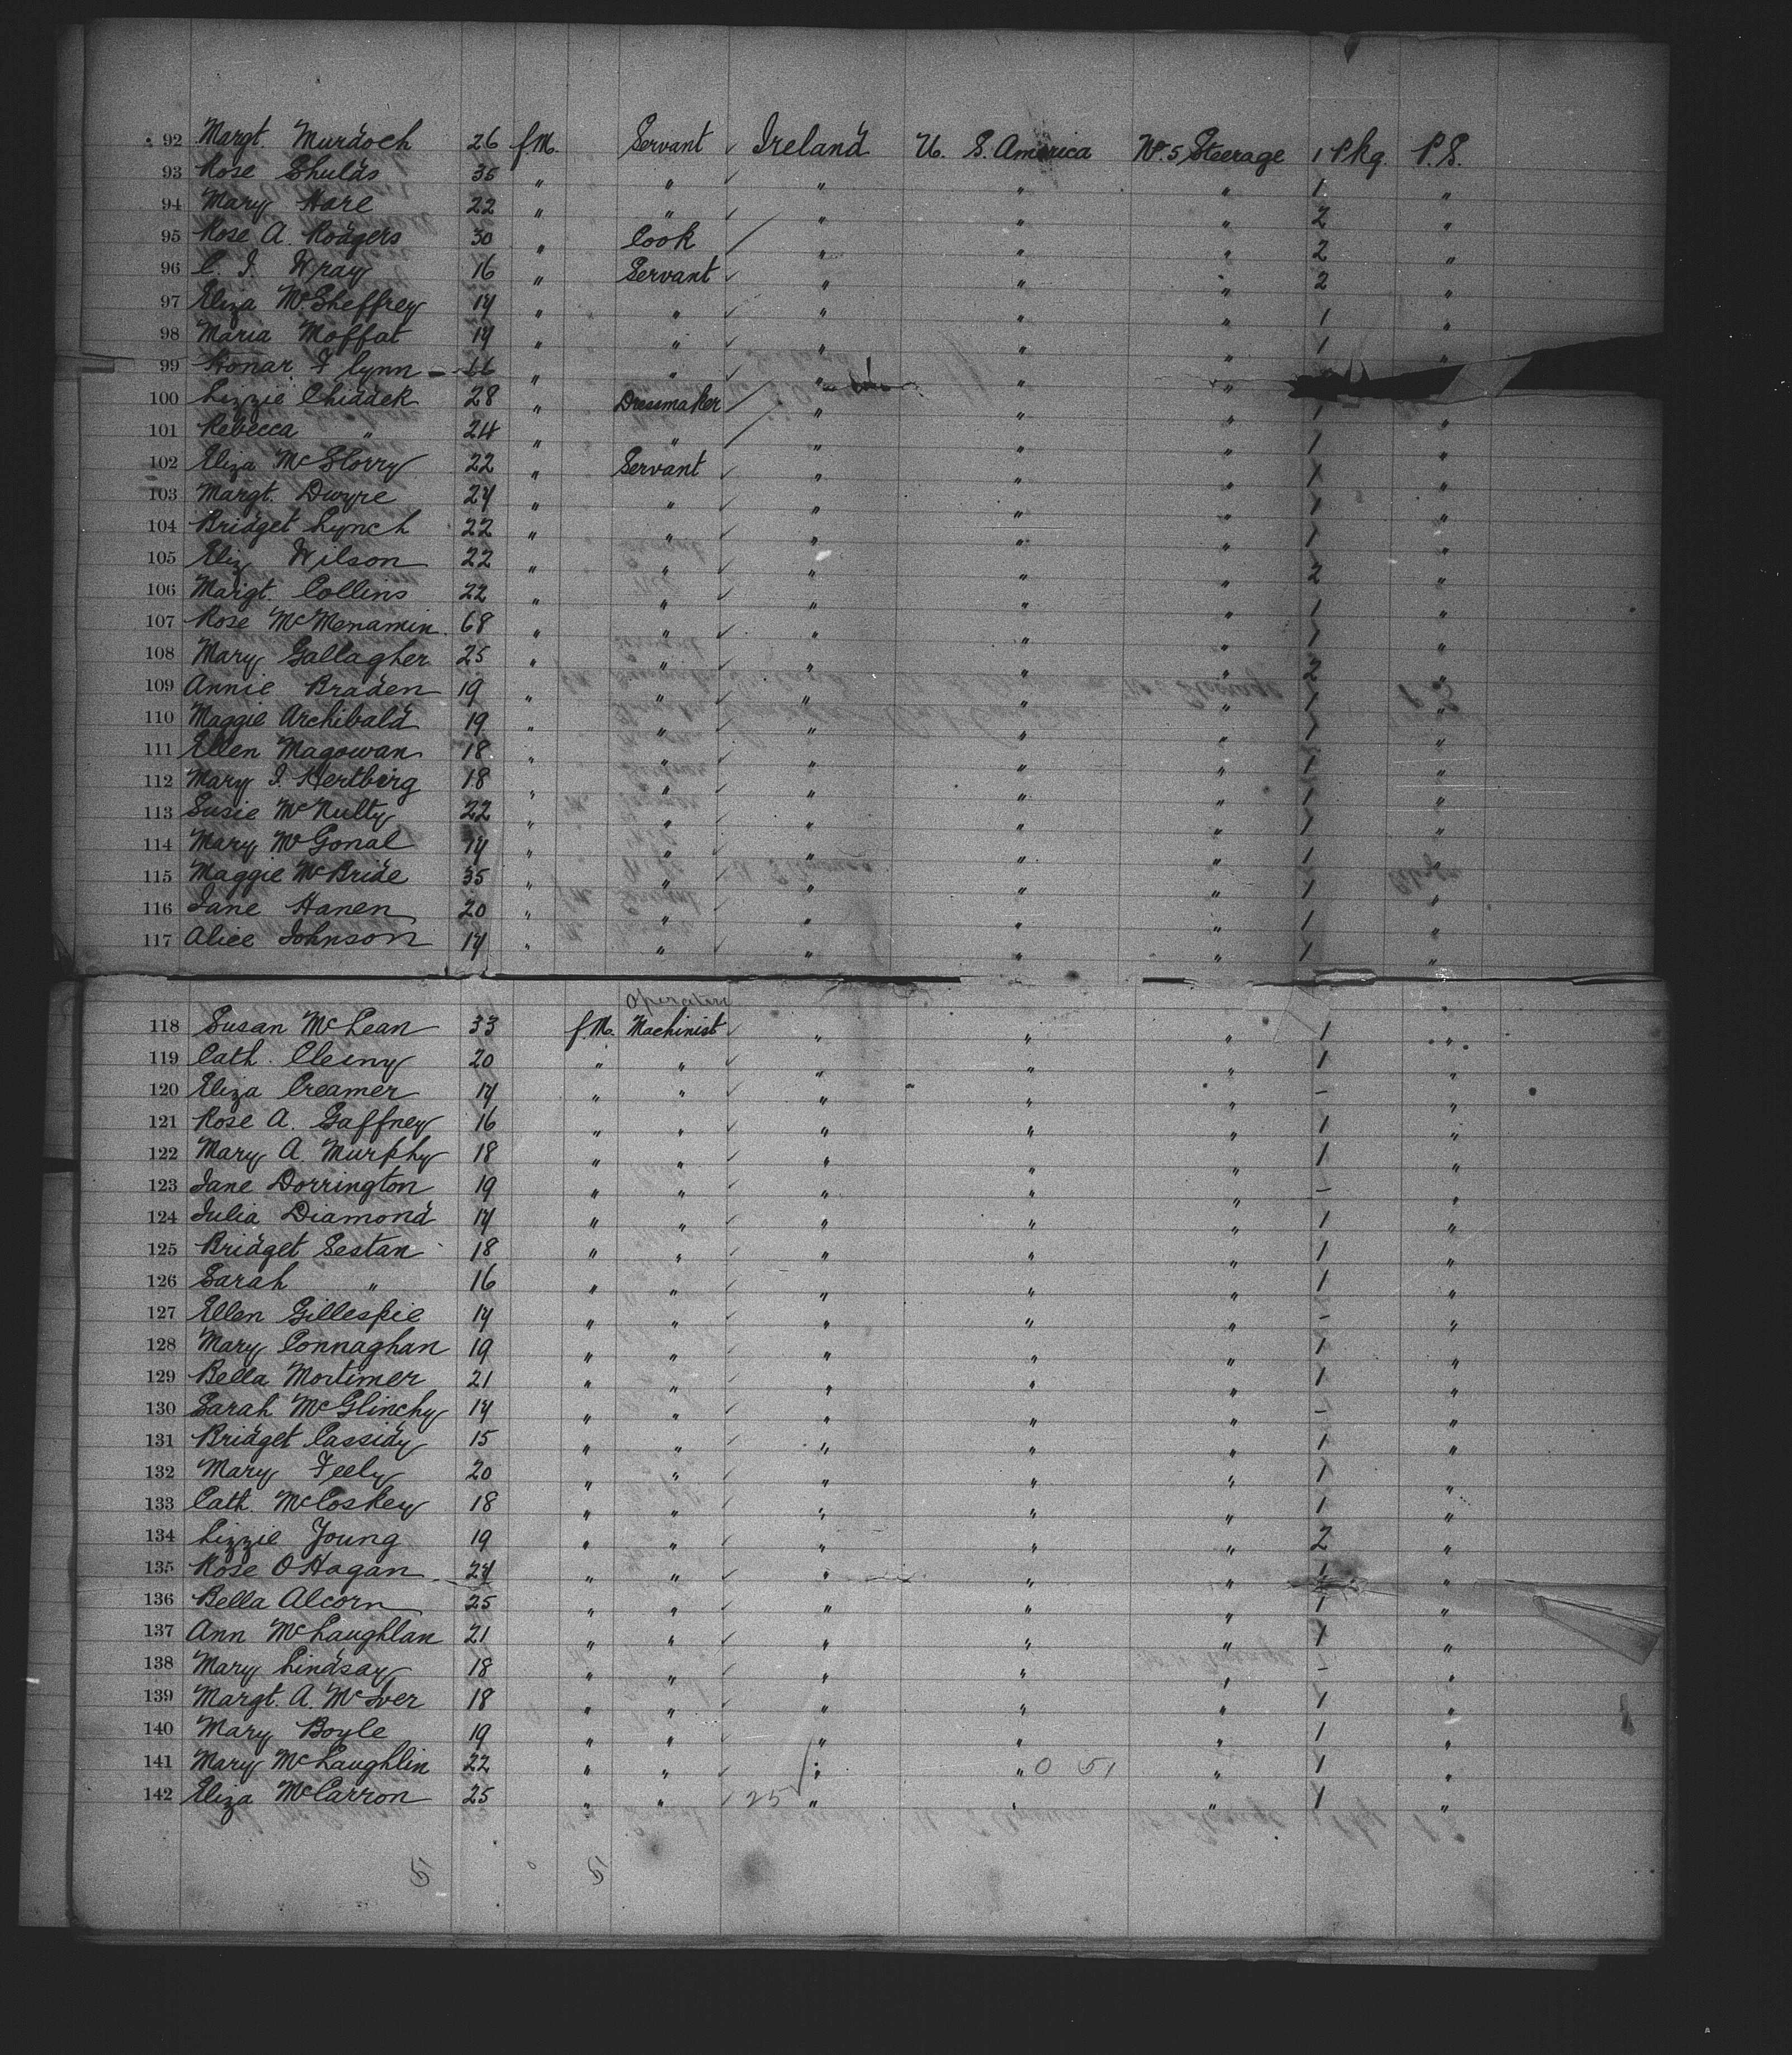 92 Margt. Murdoch 26 f.M. Servant ✓ Ireland U. S. America No. 5 Steerage 1 Pkg. P.S.
93 Rose Shulds 35 " " ✓ " " " 1 "
94 Mary Hare 22 " " ✓ " " " 2 "
95 Rose A. Rodgers 30 " Cook / " " " 2 "
96 C. J. Wray 16 " Servant ✓ " " " 2 "
97 Eliza McSheffrey 14 " " ✓ " " " 1 "
98 Maria Moffat 14 " " ✓ " " " 1 "
99 Honar Flynn 16 " " " " "
100 Lizzie Chiddek 28 " Dressmaker / " " " 1 "
101 Rebecca " 24 " " / " " " 1 "
102 Eliza McGlorry 22 " Servant ✓ " " " 1 "
103 Margt. Dwyre 24 " " ✓ " " " 1 "
104 Bridget Lynch 22 " " ✓ " " " 1 "
105 Eliz Wilson 22 " " ✓ " " " 2 "
106 Margt. Collins 22 " " ✓ " " " 1 "
107 Rose McMenamin 68 " " ✓ " " " 1 "
108 Mary Gallagher 25 " " ✓ " " " 2 "
109 Annie Braden 19 " " ✓ " " " 1 "
110 Maggie Archibald 19 " " ✓ " " " 1 "
111 Ellen Magowan 18 " " ✓ " " " 1 "
112 Mary J. Hertberg 18 " " ✓ " " " 1 "
113 Susie McNulty 22 " " ✓ " " " 1 "
114 Mary McGonal 14 " " ✓ " " " 1 "
115 Maggie McBride 35 " " ✓ " " " 1 "
116 Jane Hanen 20 " " ✓ " " " 1 "
117 Alice Johnson 14 " " ✓ " " " 1 "
Operative
118 Susan McLean 33 f.M. Machinist ✓ " " " 1 "
119 Cath. Cleiny 20 " " ✓ " " " 1 "
120 Eliza Creamer 14 " " ✓ " " " – "
121 Rose A. Gaffney 16 " " ✓ " " " 1 "
122 Mary A. Murphy 18 " " ✓ " " " 1 "
123 Jane Dorrington 19 " " ✓ " " " – "
124 Julia Diamond 14 " " ✓ " " " 1 "
125 Bridget Sestan 18 " " ✓ " " " 1 "
126 Sarah " 16 " " ✓ " " " 1 "
127 Ellen Gillespie 14 " " ✓ " " " – "
128 Mary Connaghan 19 " " ✓ " " " 1 "
129 Bella Mortimer 21 " " ✓ " " " 1 "
130 Sarah McGlinchy 14 " " ✓ " " " – "
131 Bridget Cassidy 15 " " ✓ " " " 1 "
132 Mary Feely 20 " " ✓ " " " 1 "
133 Cath. McCloskey 18 " " ✓ " " " 1 "
134 Lizzie Young 19 " " ✓ " " " 2 "
135 Rose O'Hagan 24 " " ✓ " " " 1 "
136 Bella Alcorn 25 " " ✓ " " " 1 "
137 Ann McLaughlan 21 " " ✓ " " " 1 "
138 Mary Lindsay 18 " " ✓ " " " – "
139 Margt. A. McIver 18 " " ✓ " " " 1 "
140 Mary Boyle 19 " " ✓ " " " 1 "
141 Mary McLaughlin 22 " " ✓ " " 0 51 " 1 "
142 Eliza McCarron 25 " " ✓ 25 ✓ " " " 1 "
5 0 5